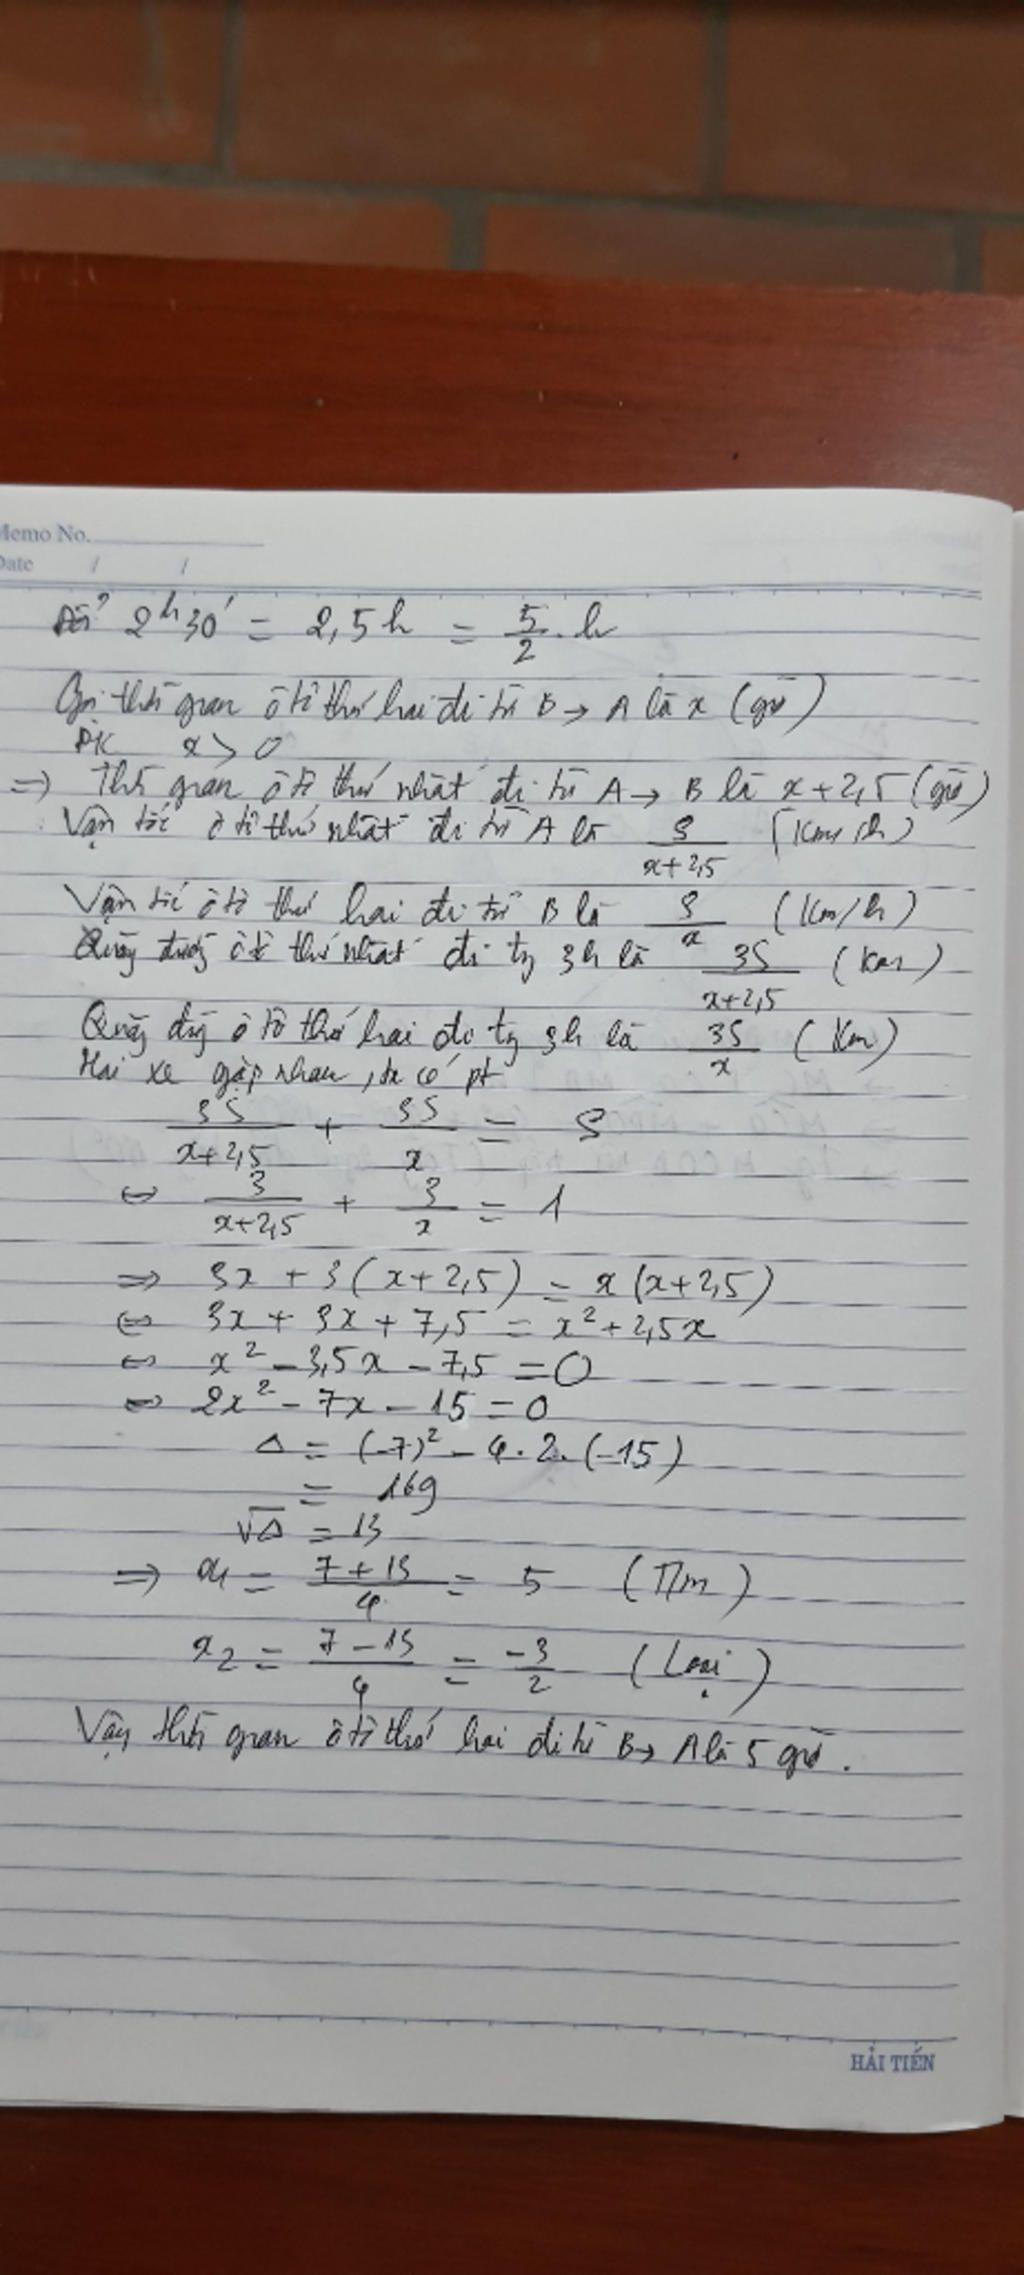 Memo No.
Date / /
Đổi 2h30' = 2,5h = 5/2 . h
Gọi thời gian ô tô thứ hai đi từ B → A là x (giờ)
ĐK x > 0
=> Thời gian ô tô thứ nhất đi từ A → B là x + 2,5 (giờ)
Vận tốc ô tô thứ nhất đi từ A là S/(x+2,5) (Km/h)
Vận tốc ô tô thứ hai đi từ B là S/x (Km/h)
Quãng đường ô tô thứ nhất đi tg 3h là 3S/(x+2,5) (Km)
Quãng đg ô tô thứ hai đi tg 3h là 3S/x (Km)
Hai xe gặp nhau, ta có pt
3S/(x+2,5) + 3S/x = S
<=> 3/(x+2,5) + 3/x = 1
=> 3x + 3(x+2,5) = x(x+2,5)
<=> 3x + 3x + 7,5 = x² + 2,5x
<=> x² - 3,5x - 7,5 = 0
<=> 2x² - 7x - 15 = 0
Δ = (-7)² - 4.2.(-15)
= 169
√Δ = 13
=> x₁ = (7+13)/4 = 5 (T/m)
x₂ = (7-13)/4 = -3/2 (Loại)
Vậy thời gian ô tô thứ hai đi từ B → A là 5 giờ.
HẢI TIẾN